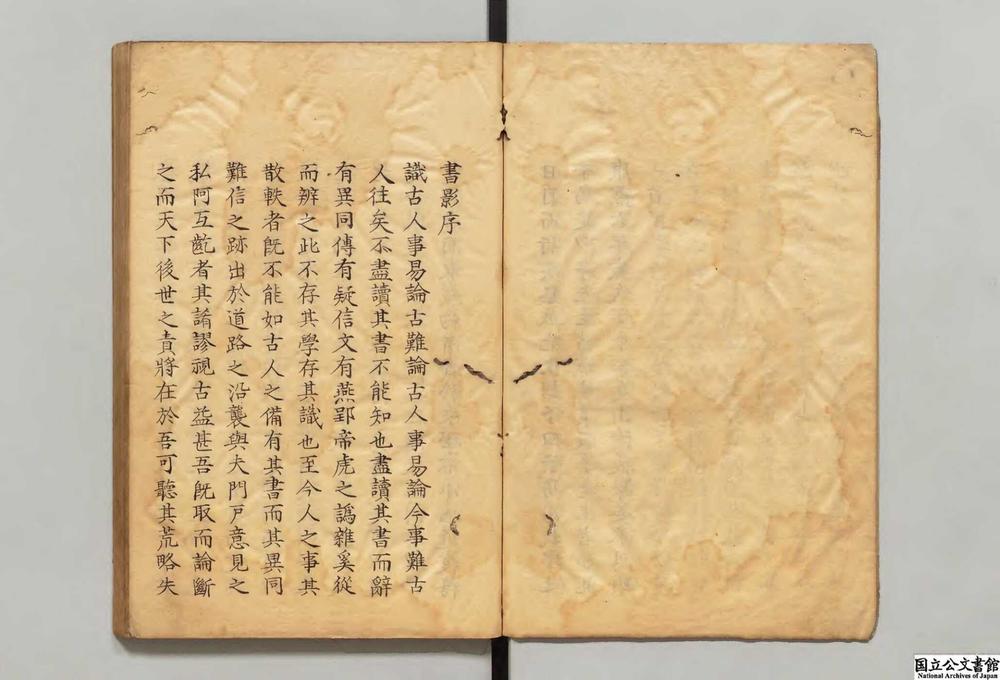 書影序
識古人事易論古難論古人事易論今事難古
人往矣不盡讀其書不能知也盡讀其書而辭
有異同傳有疑信文有燕郢帝虎之譌雜奚從
而辨之此不存其學存其識也至今人之事其
散軼者旣不能如古人之備有其書而其異同
難信之跡出於道路之沿襲與夫門戸意見之
私阿互齕者其諸謬視古益甚吾旣取而論斷
之而天下後世之責將在於吾可聽其荒略失
国立公文書館
National Archives of Japan